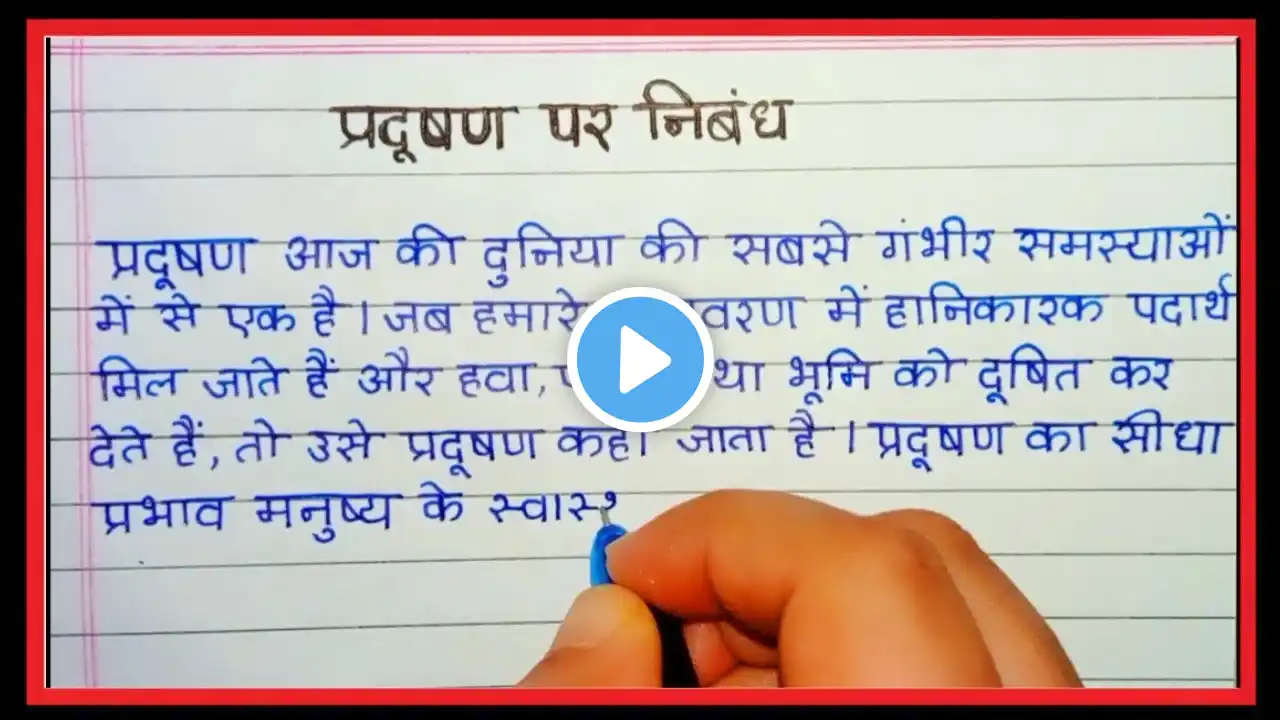 प्रदूषण पर निबंध
प्रदूषण आज की दुनिया की सबसे गंभीर समस्याओं
में से एक है। जब हमारे में हानिकारक पदार्थ
मिल जाते हैं और हवा, भूमि को दूषित कर
देते हैं, तो उसे प्रदूषण कहा जाता है। प्रदूषण का सीधा
प्रभाव मनुष्य के